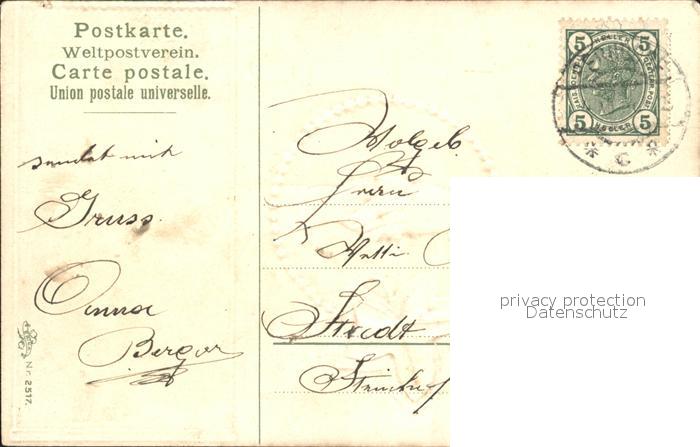 Postkarte.
Weltpostverein.
Carte postale.
Union postale universelle.
sendet mit
Gruss
Anna
Berger
Nr. 2517.
5 HELLER 5
5 HELLER 5
* C *
Wolgeb.
Frau
Stadt
privacy protection
Datenschutz